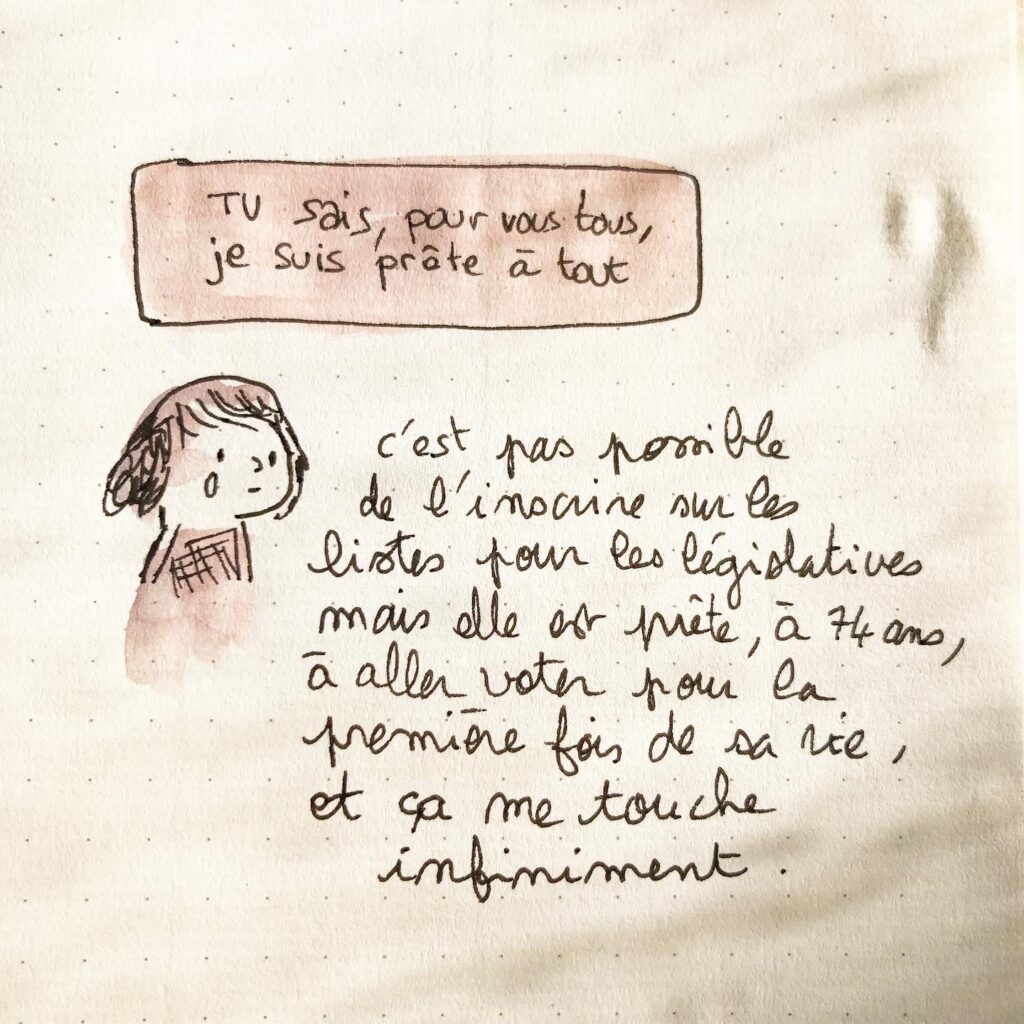 TU sais, pour vous tous,
je suis prête à tout
c'est pas possible
de l'inscrire sur les
listes pour les législatives
mais elle est prête, à 74 ans,
à aller voter pour la
première fois de sa vie,
et ça me touche
infiniment.